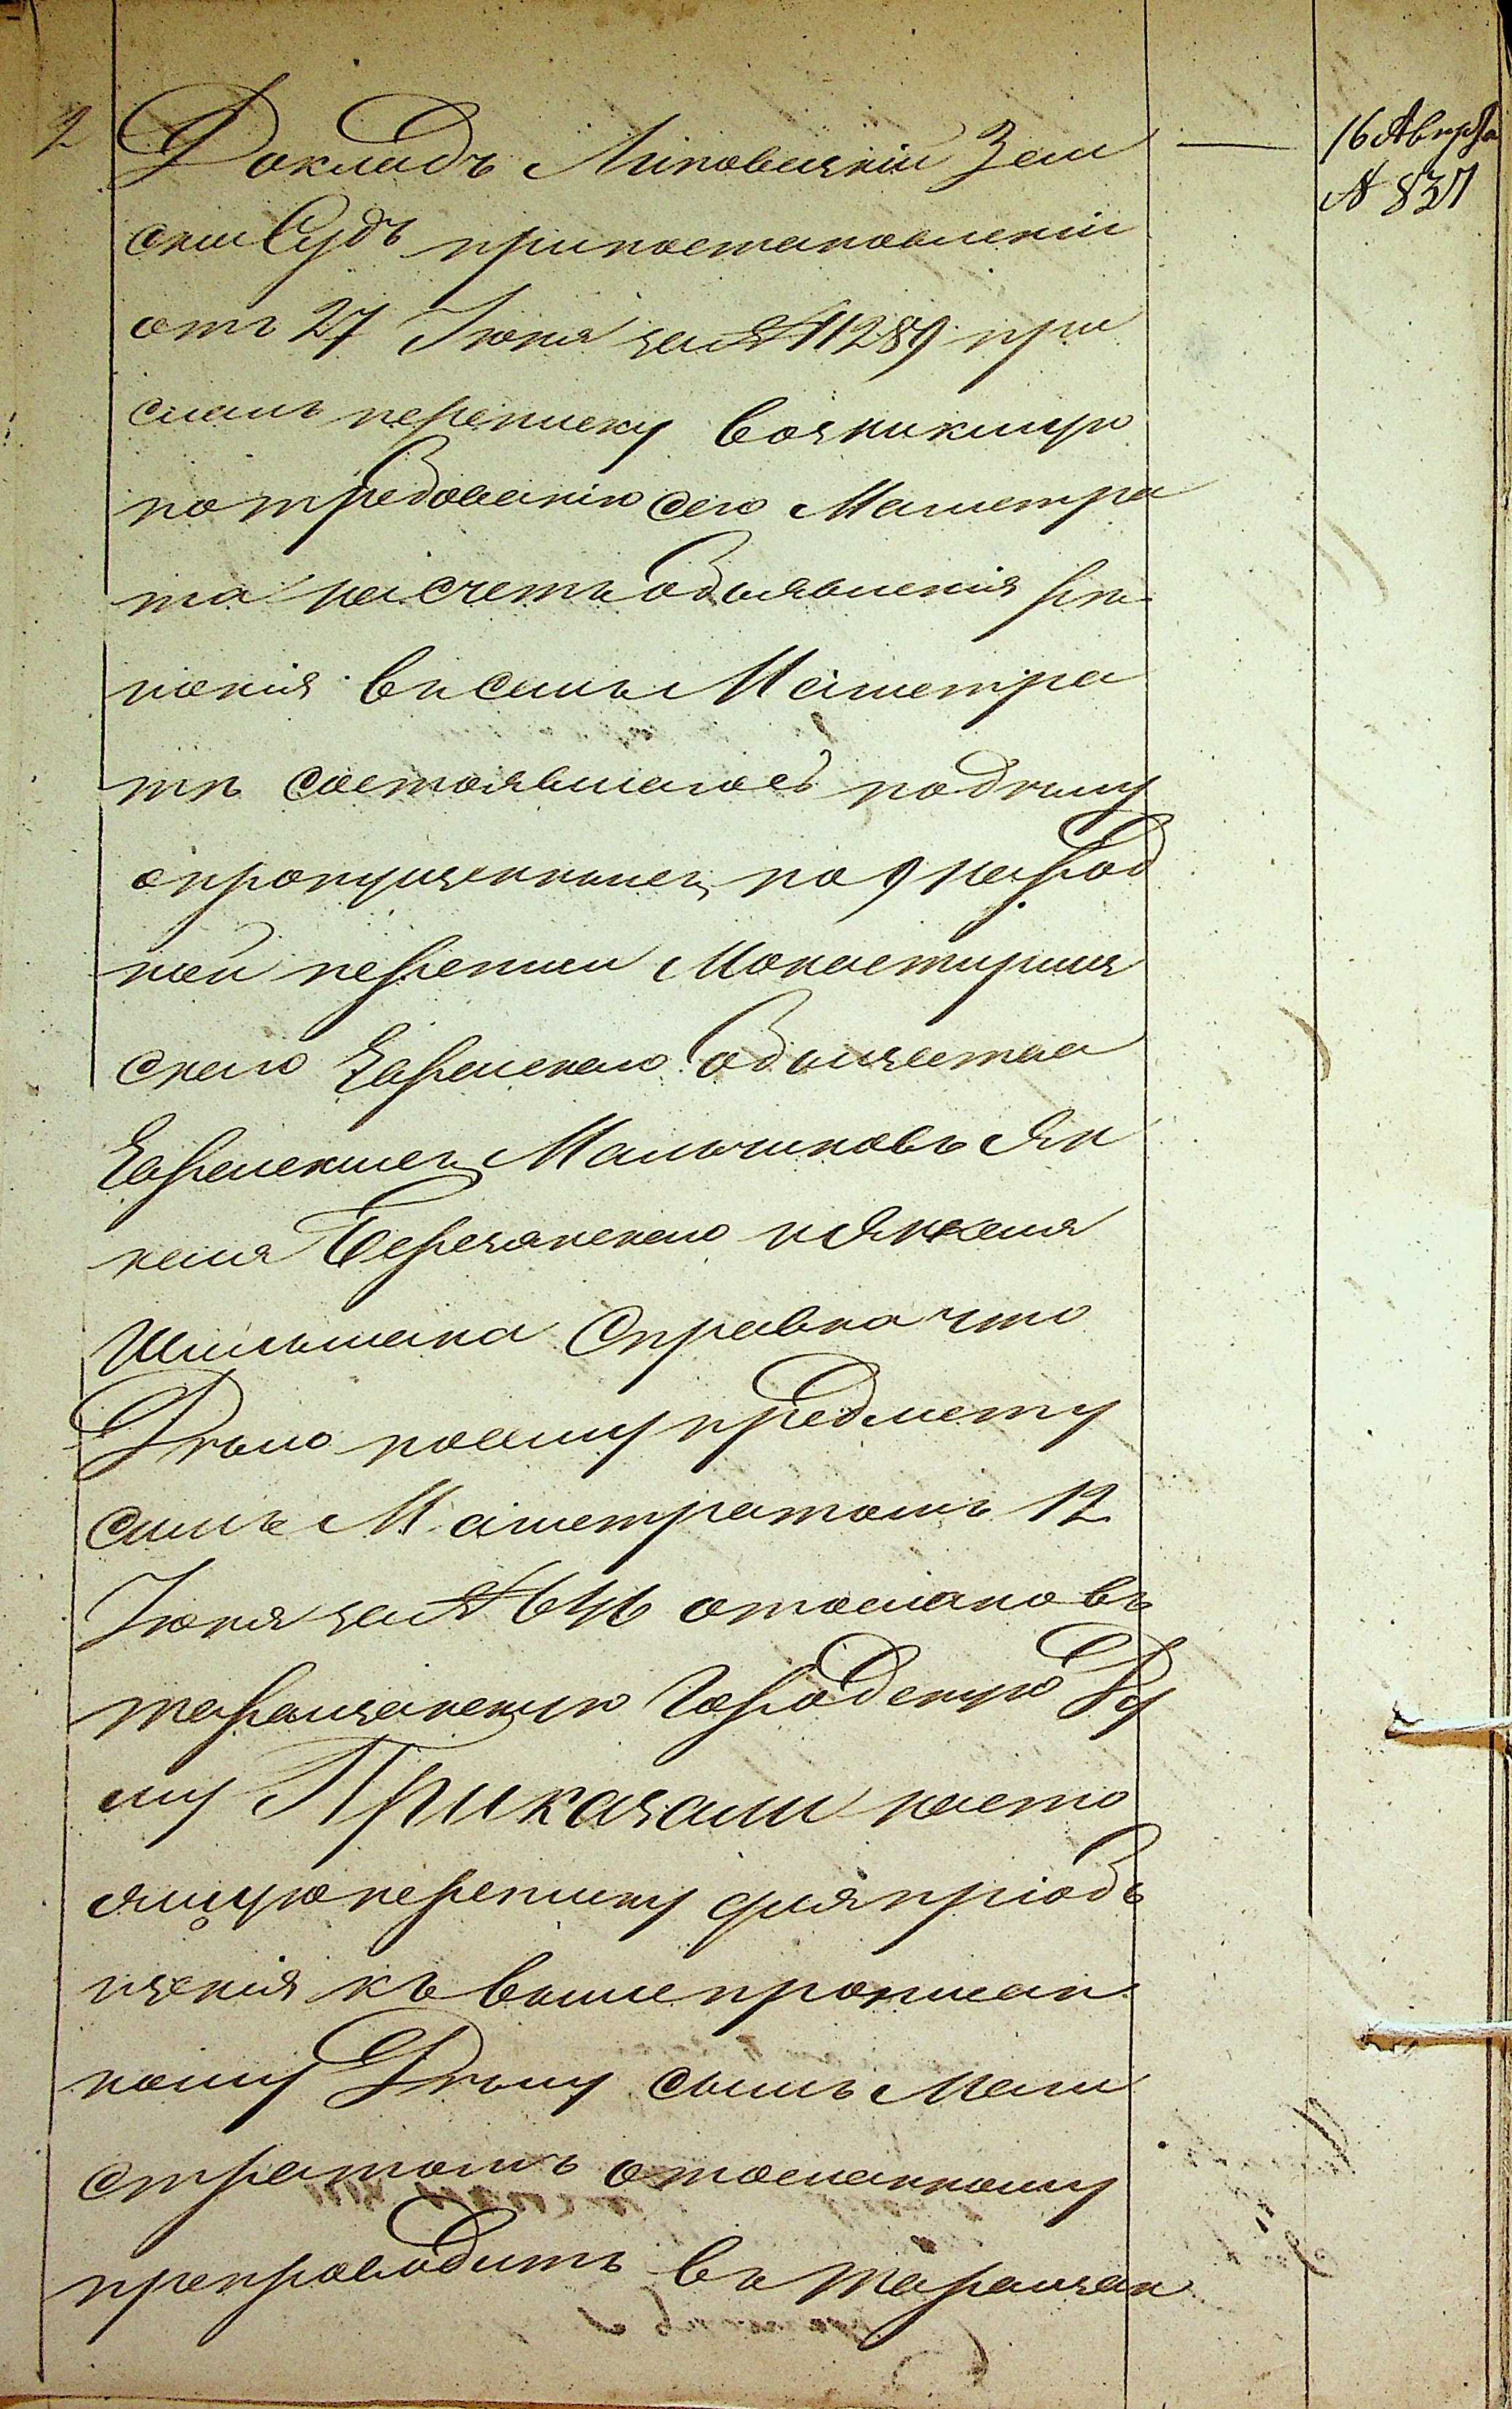 2
Докладъ Липовецкій Зем
скій Судъ припостановленіи
отъ 27 Іюня за № 11289 при
слалъ переписку возникшую
по требованію сего Магистра
та насчетъ объявленія рѣ
шенія въ семъ Магистра
тѣ состоявшагося по дѣлу
о пропущенныхъ по 9 народ
ной переписи Монастырищ
скаго Еврейскаго Общества
Еврейскихъ Мальчиковъ Ян
келя Березанскаго и Янкеля
Шильмана Справка что
Дѣло посему предмету
симъ Магистратомъ 12
Іюня за № 646 отослано въ
таращанскую Городскую Ду
му Приказали насто
ящую переписку для пріоб
щенія къ вышепрописан
ному Дѣлу симъ Маги
стратомъ отосланному
препроводить въ Таращан
16 Августа
№ 837